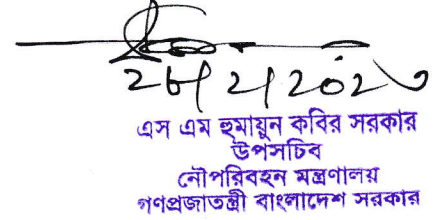 ২৮/২/২০২৩
এস এম হুমায়ুন কবির সরকার
উপসচিব
নৌপরিবহন মন্ত্রণালয়
গণপ্রজাতন্ত্রী বাংলাদেশ সরকার